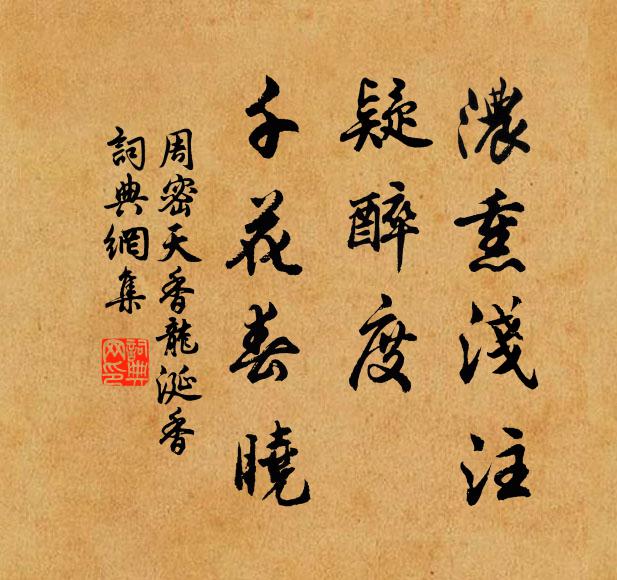 濃熏淺注
疑醉度
千花春曉
周密天香龍涎香
詞典網集
詞典
网印